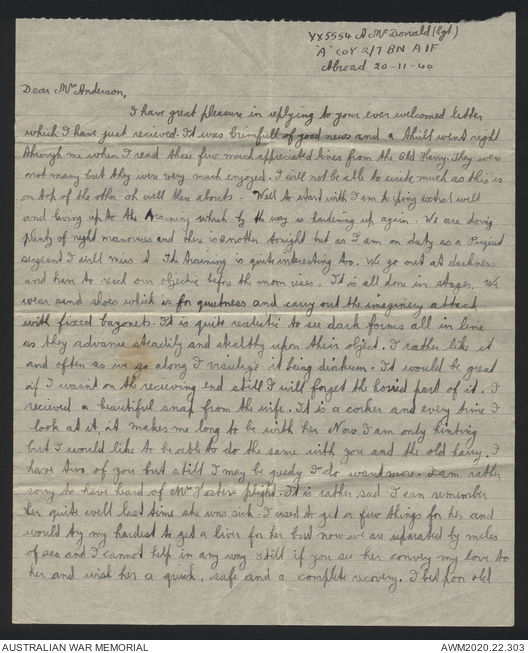 VX5554 A McDonald (Sgt)
"A" COY 2/7 BN AIF
Abroad 20-11-40
Dear Mrs Anderson,
I have great pleasure in replying to your ever welcomed letter
which I have just recieved. It was brimfull of good news and a thrill went right
through me when I read those few much appreciated lines from the Old Harry. They were
not many but they were very much enjoyed. I will not be able to write much as this is
on top of the other oh well there abouts - Well to start with I am keeping extra well
and living up to the training which by the way is hardening up again. We are doing
plenty of night manouvres and there is another tonight but as I am on duty as a
sergeant I will miss it. The training is quite interesting too. We go out at darkness
and have to reach our objective before the moon rises. It is all done in stages. We
wear sand shoes which is for quietness and carry out the imaginery attack
with fixed bayonets. It is quite realistic to see dark forms all in line
as they advance steadily and stealthy upon their object. I rather like it
and often as we go along I visulize it being dinkum. It would be great
if I wasnt on the recieving end still I will forget the horrid part of it. I
recieved a beautiful snap from the wife. It is a corker and every time I
look at it, it makes me long to be with her Now I am only hinting
but I would like to be able to do the same with you and the old harry. I
have two of you but still I may be greedy I do want more. I am rather
sorry to have heard of Mrs plight. It is rather sad I can remember
her quite well last time she was sick. I used to get a few things for her and
would try my hardest to get a liver for her but now we are separated by miles
of sea and I cannot help in any way still if you see her convey my love to
her and wish her a quick, safe and a complete recovery. I bet poor old
AUSTRALIAN WAR MEMORIAL
AWM2020.22.303